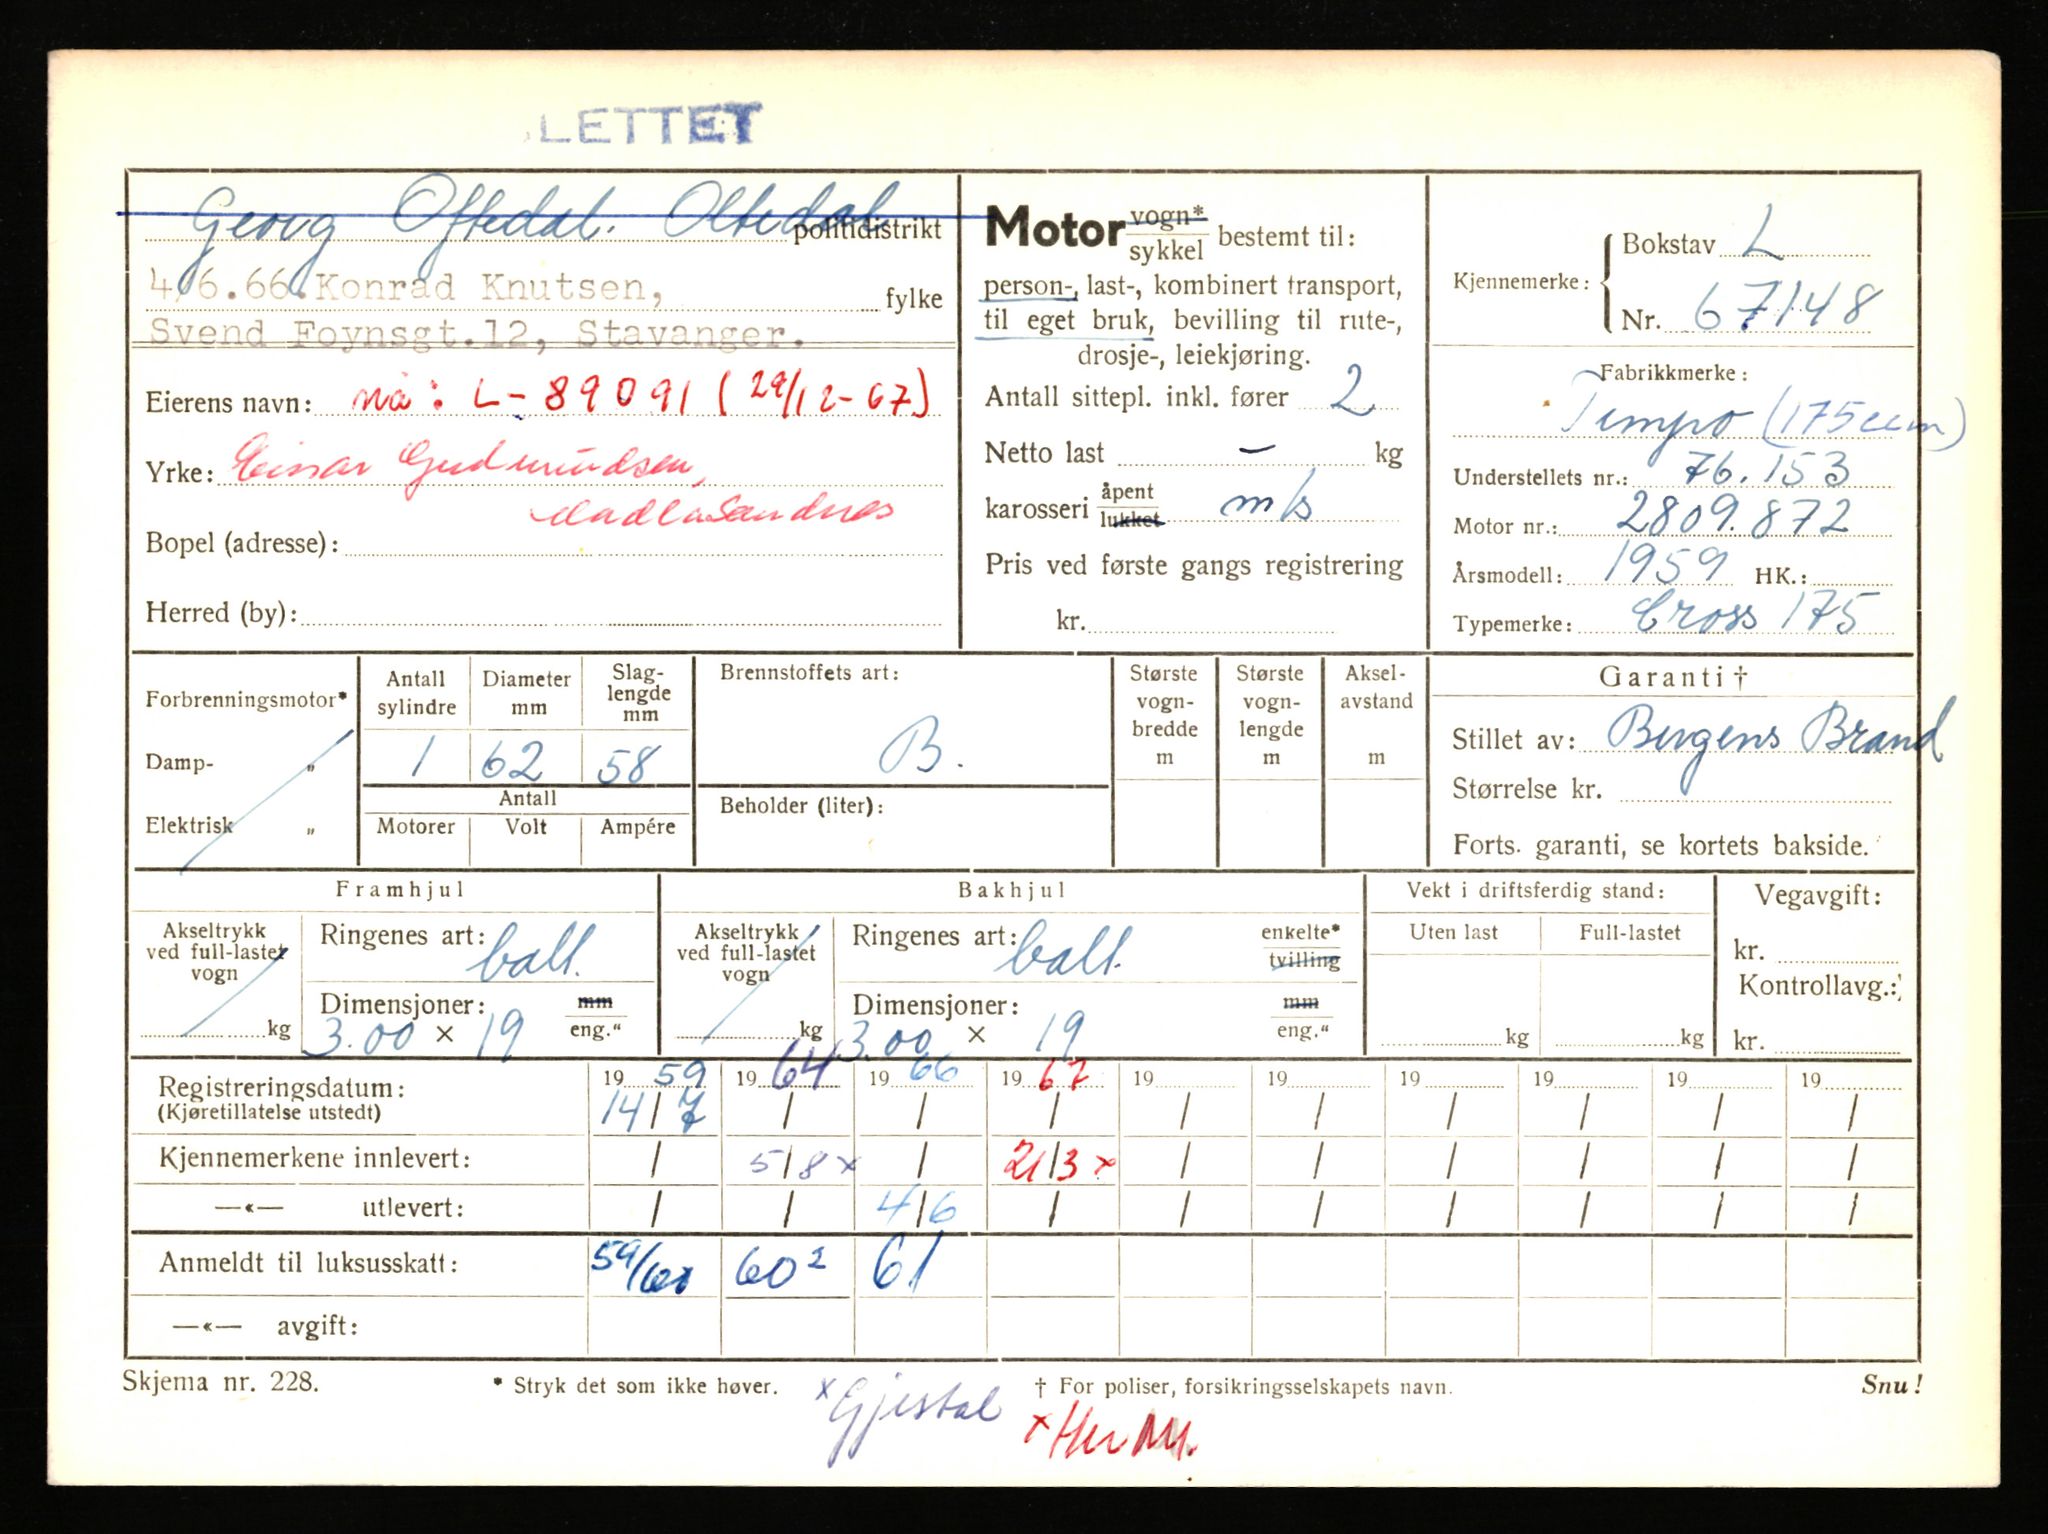 LETTET
Georg Oftedal. Oltedal
politidistrikt
4.6.66.Konrad Knutsen,
fylke
Svend Foynsgt.12, Stavanger.
Eierens navn: nå: L-89091 (29/12-67)
Yrke: Einar Gudmundsen,
Sandnes
Bopel (adresse):
Herred (by):
Motor vogn* sykkel bestemt til:
person-, last-, kombinert transport,
til eget bruk, bevilling til rute-,
drosje-, leiekjøring.
Antall sittepl. inkl. fører 2
Netto last – kg
karosseri åpent lukket m/s
Pris ved første gangs registrering
kr.
Kjennemerke: Bokstav L
Nr. 67148
Fabrikkmerke:
Tempo (175ccm)
Understellets nr.: 76.153
Motor nr.: 2809.872
Årsmodell: 1959 HK.:
Typemerke: Cross 175
Forbrenningsmotor*
Damp- „
Elektrisk „
Antall sylindre Diameter mm Slag-lengde mm
1 62 58
Antall
Motorer Volt Ampére
Brennstoffets art:
B.
Beholder (liter):
Største vogn-bredde m
Største vogn-lengde m
Aksel-avstand m
Garanti †
Stillet av: Bergens Brand
Størrelse kr.
Forts. garanti, se kortets bakside.
Framhjul
Akseltrykk ved full-lastet vogn
kg
Ringenes art: ball.
Dimensjoner: mm eng.“
3.00 × 19
Bakhjul
Akseltrykk ved full-lastet vogn
kg
Ringenes art: ball. enkelte* tvilling
Dimensjoner: mm eng.“
3.00 × 19
Vekt i driftsferdig stand:
Uten last Full-lastet
kg kg
Vegavgift:
kr.
Kontrollavg.:
kr.
Registreringsdatum: 19 59 19 64 19 66 19 67 19 19 19 19 19 19
(Kjøretillatelse utstedt) 14/7 / / / / / / / / /
Kjennemerkene innlevert: / 5/8 x / 21/3 x / / / / / /
—«— utlevert: / / 4/6 / / / / / / /
Anmeldt til luksusskatt: 59/60 60² 61
—«— avgift:
Skjema nr. 228.
* Stryk det som ikke høver.
† For poliser, forsikringsselskapets navn.
Snu!
x Gjestal
x